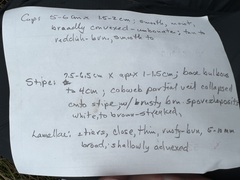 Cap: 5-6cm x 1.5-2cm; smooth, moist,
broadly convexed-umbonate; tan to
reddish-brn, smooth to
Stipe: 7.5-6.5cm x apex 1-1.5cm; base bulbous
to 4cm; cobweb partial veil collapsed
onto stipe, w/ brusty brn spore deposits
white, to brown-streaked.
Lamellae: close, thin, rusty-brn, 6-10mm
broad, shallowly adnexed.